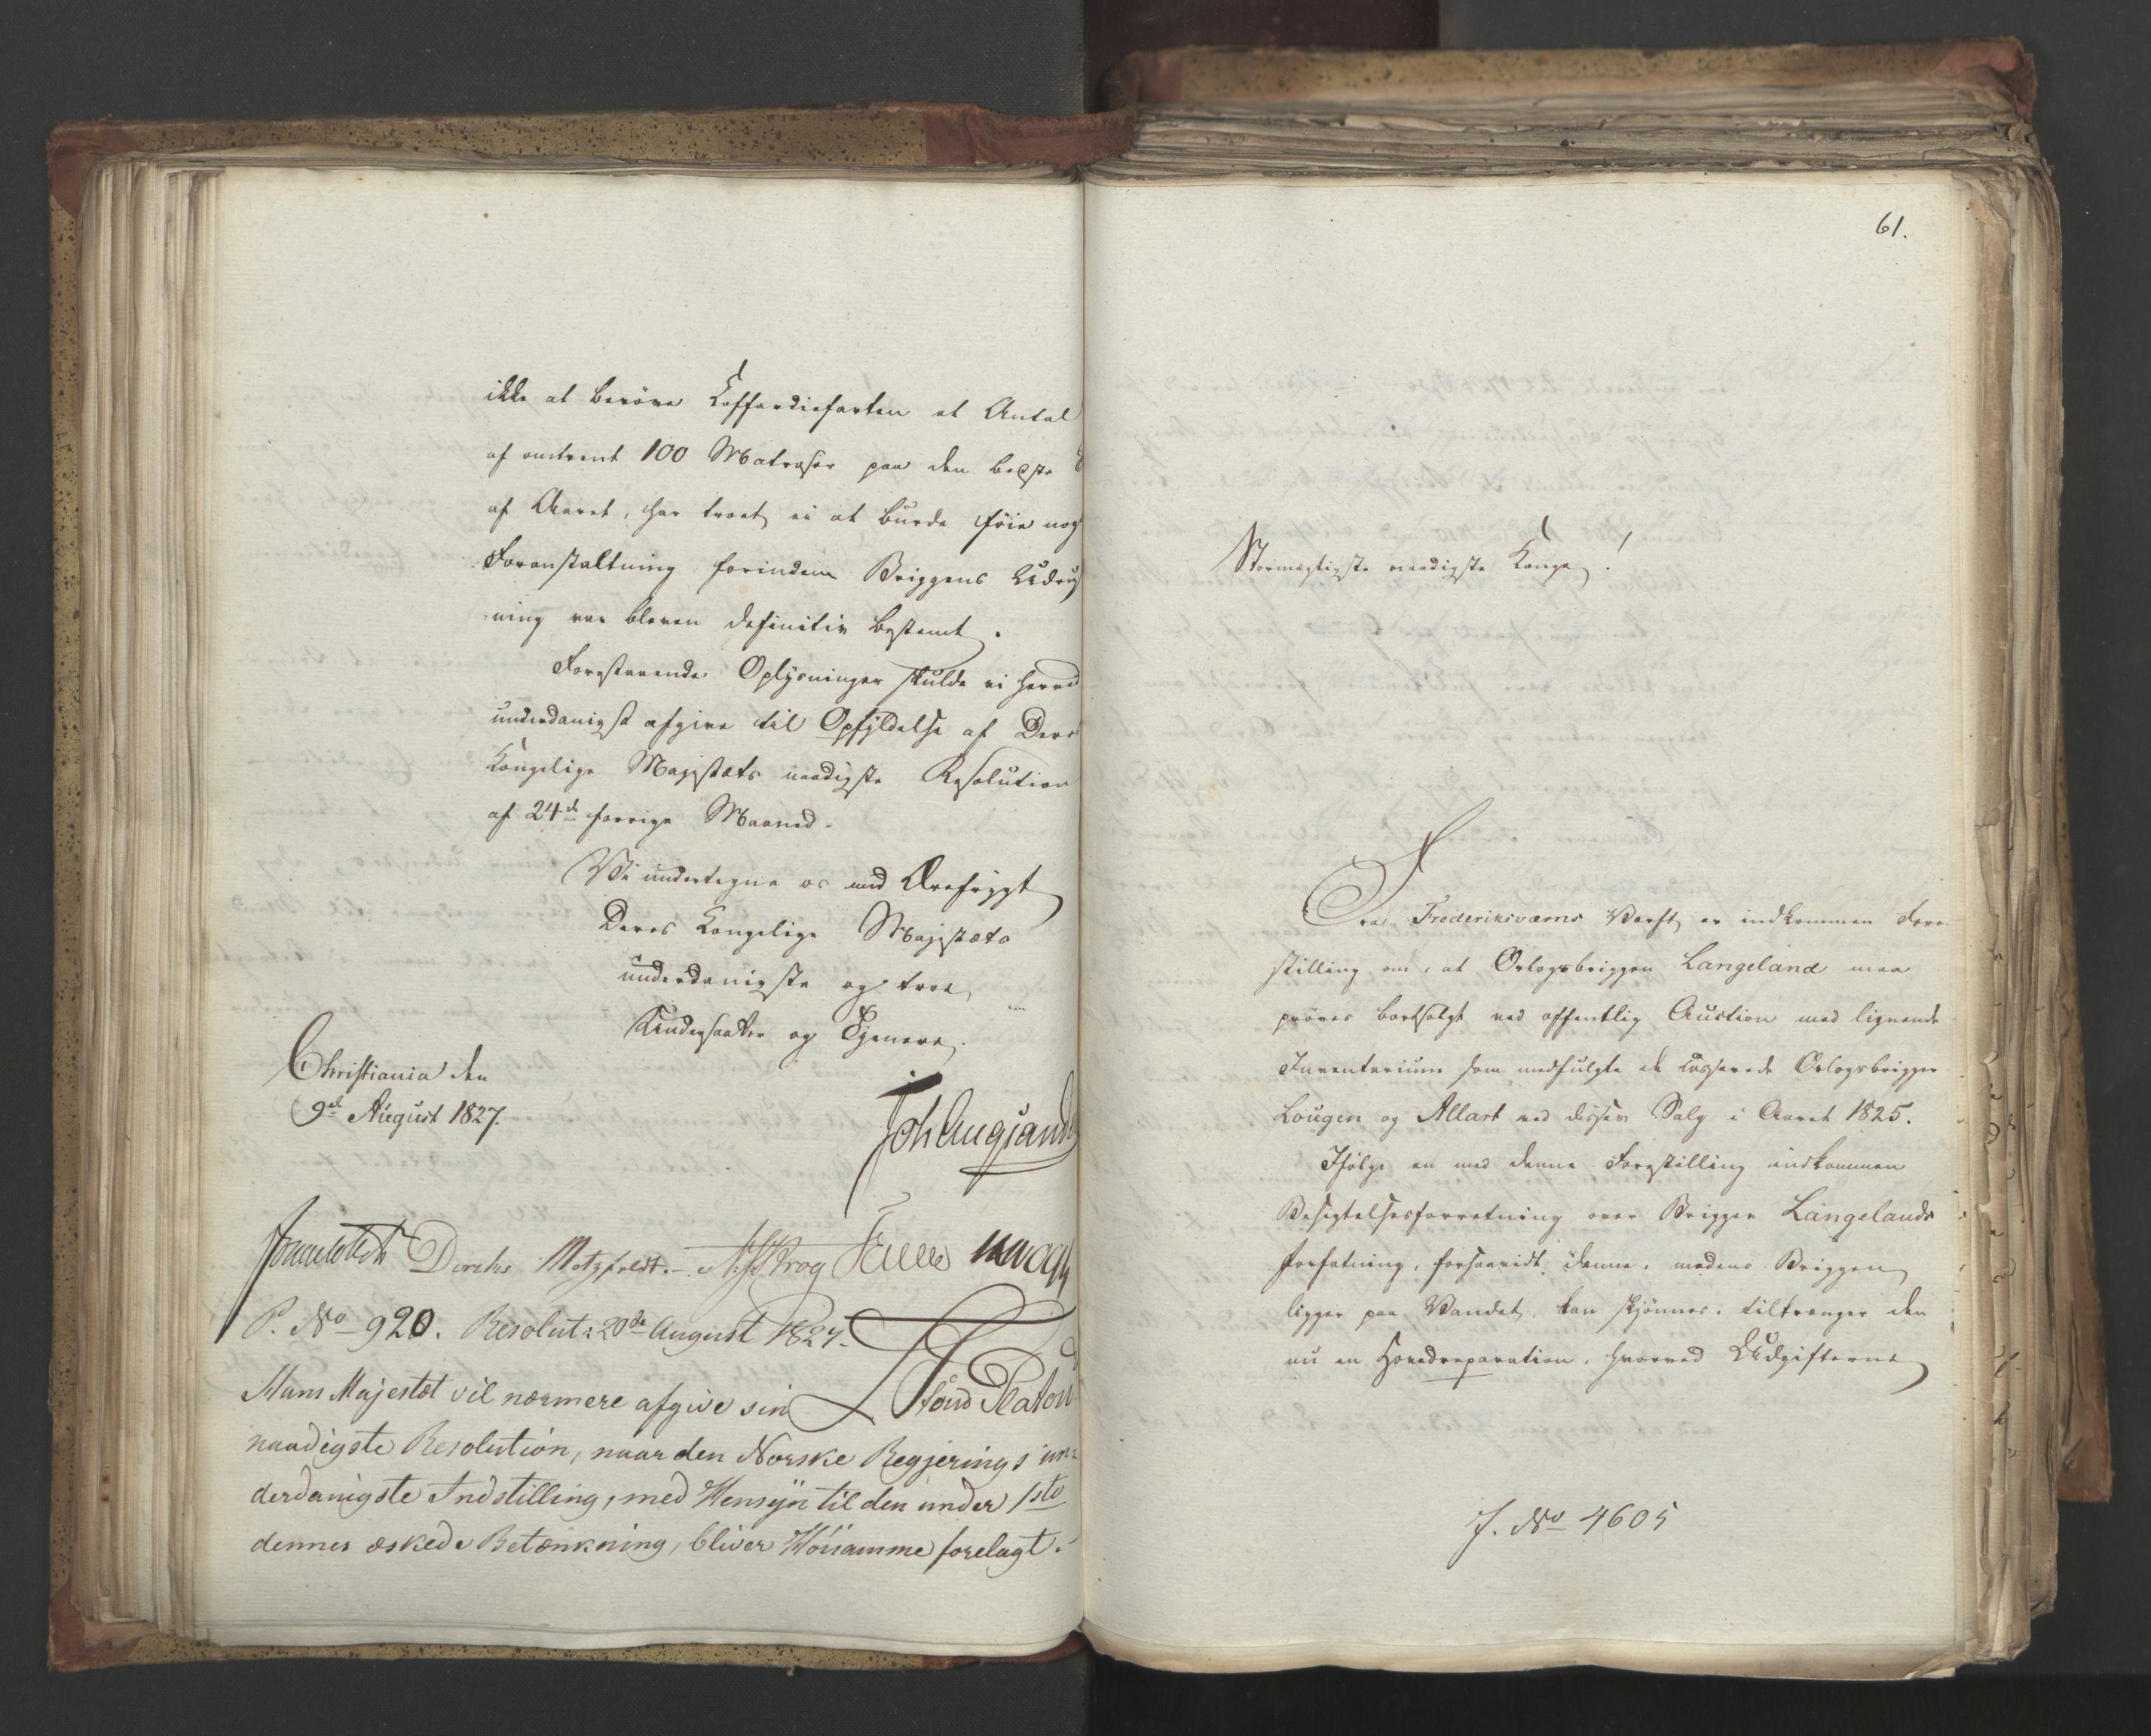 ikke at berøve Koffardiefarten et Antal
af omtrent 100 Matroser paa den bedste
af Aaret, har troet ei at burde føie nog
Foranstaltning forinden Briggens Udrust
ning var bleven definitiv bestemt.
Forestaaende Oplysninger skulde vi herved
underdanigst afgive til Opfyldelse af Deres
Kongelige Majestæts naadigste Resolution
af 24d forrige Maaned.
Vi undertegne os med Ærefrygt
Deres Kongelige Majestæts
underdanigste og troe
Undersaatter og Tjenere.
Christiania den
9d August 1827.
Joh Aug Sand
Diriks Motzfeldt. Krog
P. No 920. Resolut: 20de August 1827.
Hans Majestæt vil nærmere afgive sin
naadigste Resolution, naar den Norske Regjerings un-
derdanigste Indstilling, med Hensyn til den under 1ste
dennes æskede Betænkning, bliver Høisamme forelagt.
61.
Stormægtigste naadigste Konge!
Fra Frederiksværns Værft er indkommen Fore-
stilling om, at Orlogsbriggen Langeland maa
prøves bortsolgt ved offentlig Auction med lignende
Inventarium som medfulgte de casserede Orlogsbrigger
Lougen og Allart ved disses Salg i Aaret 1825.
Ifølge en med denne Forestilling indkommen
Besigtelsesforretning over Briggen Langelands
Forfatning, forsaavidt denne, medens Briggen
ligger paa Vandet, kan skjønnes, tiltrænger den
nu en Hovedreparation, hvorved Udgifterne
J. No 4605